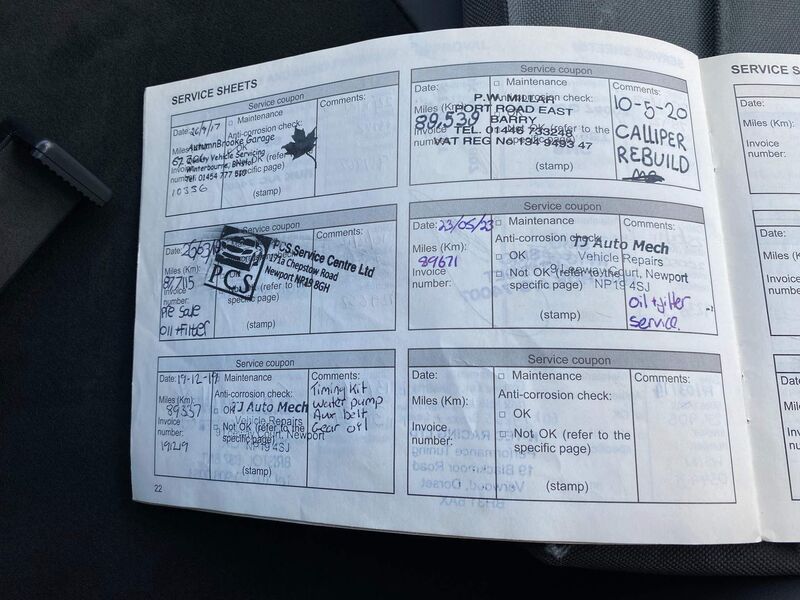 SERVICE SHEETS
Service coupon
Date: 26/9/17
Miles (Km):
Invoice number:
10336
□ Maintenance
Anti-corrosion check:
□ OK
□ Not OK (refer to the specific page)
(stamp)
AutumnBrooke Garage
Quality Vehicle Servicing
Winterbourne, Bristol
Tel: 01454 777
Comments:
Service coupon
Date:
Miles (Km):
87715
Invoice number:
Pre Sale
Oil + Filter
PCS
PCS Service Centre Ltd
171a Chepstow Road
Newport NP19 8GH
specific page)
(stamp)
Comments:
Service coupon
Date: 19-12-19
Miles (Km):
89337
Invoice number:
191219
□ Maintenance
Anti-corrosion check:
□ OK
□ Not OK (refer to the specific page)
(stamp)
TJ Auto Mech
Vehicle Repairs
Court, Newport
NP19 4SJ
Comments:
Timing Kit
Water pump
Aux belt
Gear oil
22
Service coupon
Date:
Miles (Km):
89,539
Invoice number:
□ Maintenance
Anti-corrosion check:
□ OK
□ Not OK (refer to the specific page)
(stamp)
P.W. MILLAR
PORT ROAD EAST
BARRY
TEL. 01446 733248
VAT REG No 134 9493 47
Comments:
10-5-20
CALLIPER
REBUILD
Service coupon
Date: 23/05/23
Miles (Km):
89671
Invoice number:
□ Maintenance
Anti-corrosion check:
□ OK
□ Not OK (refer to the specific page)
(stamp)
TJ Auto Mech
Vehicle Repairs
Court, Newport
NP19 4SJ
Comments:
Oil + filter
Service.
Service coupon
Date:
Miles (Km):
Invoice number:
□ Maintenance
Anti-corrosion check:
□ OK
□ Not OK (refer to the specific page)
(stamp)
Comments:
SERVICE S
Date:
Miles (Km):
Invoice
number:
Date:
Miles (Km)
Invoice
number:
Date:
Miles (K
Invoice
number